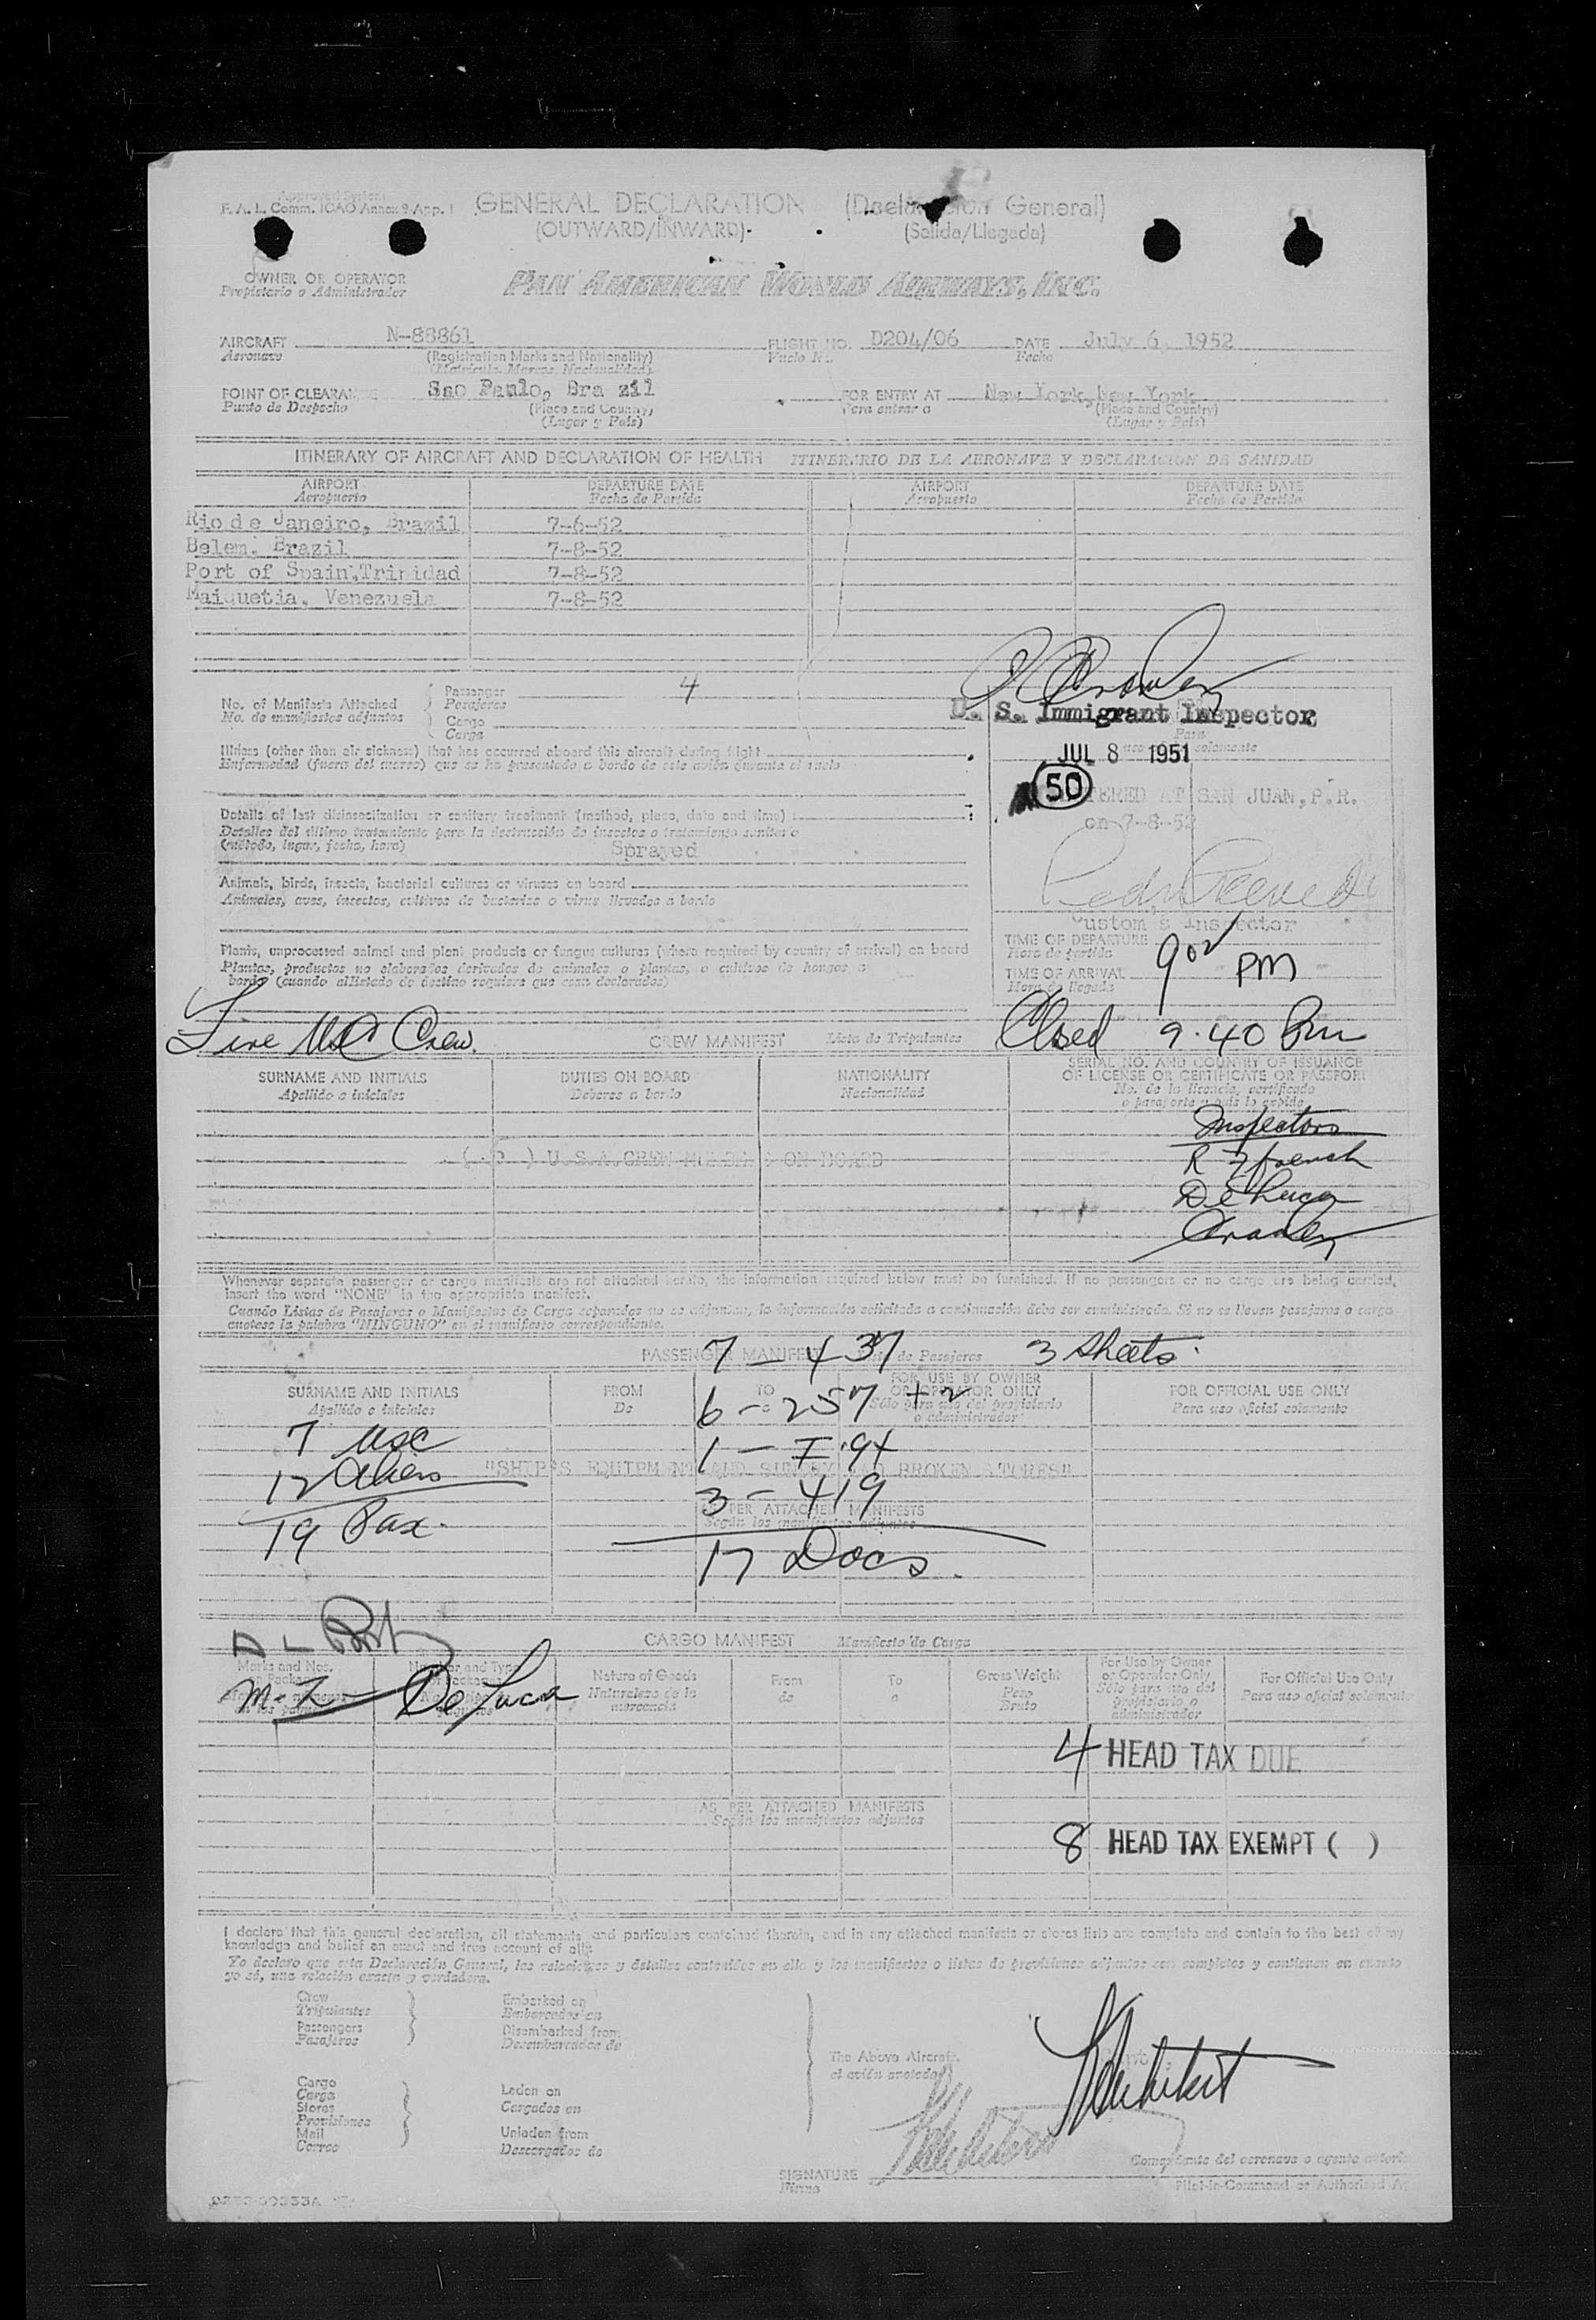 Approved System
F. A. L. Comm. ICAO Annex 9-App. 1
GENERAL DECLARATION (Declaracion General)
(OUTWARD/INWARD) (Salida/Llegada)
OWNER OR OPERATOR
Propietario o Administrador
PAN AMERICAN WORLD AIRWAYS, INC.
AIRCRAFT N-88861 FLIGHT NO. D204/06 DATE July 6, 1952
Aeronave (Registration Marks and Nationality) Vuelo No. Fecha
(Matricula, Marcas, Nacionalidad)
POINT OF CLEARANCE Sao Paulo, Bra zil FOR ENTRY AT New York, New York
Punto de Despacho (Place and Country) Para entrar a (Place and Country)
(Lugar y País) (Lugar y País)
ITINERARY OF AIRCRAFT AND DECLARATION OF HEALTH ITINERARIO DE LA AERONAVE Y DECLARACION DE SANIDAD
AIRPORT DEPARTURE DATE AIRPORT DEPARTURE DATE
Aeropuerto Fecha de Partida Aeropuerto Fecha de Partida
Rio de Janeiro, Brazil 7-6-52
Belem, Brazil 7-8-52
Port of Spain, Trinidad 7-8-52
Maiquetia, Venezuela 7-8-52
No. of Manifests Attached Passenger 4
No. de manifiestos adjuntos Pasajeros
Cargo
Carga
U. S. Immigrant Inspector
Para
uso solamente
JUL 8 1951
Illness (other than air sickness) that has occurred aboard this aircraft during flight
Enfermedad (fuera del mareo) que se ha presentado a bordo de este avión durante el vuelo
50
ENTERED AT SAN JUAN, P.R.
on 7-8-52
Details of last disinsectization or sanitary treatment (method, place, date and time)
Detalles del último tratamiento para la destrucción de insectos o tratamiento sanitario
(método, lugar, fecha, hora) Sprayed
Animals, birds, insects, bacterial cultures or viruses on board
Animales, aves, insectos, cultivos de bacterias o virus llevados a bordo
Customs Inspector
Plants, unprocessed animal and plant products or fungus cultures (where required by country of arrival) on board
Plantas, productos no elaborados derivados de animales o plantas, o cultivos de hongos a
bordo (cuando el Estado de destino requiera que sean declarados)
TIME OF DEPARTURE
Hora de partida
TIME OF ARRIVAL 902 PM
Hora de llegada
Five USC Crew. CREW MANIFEST Lista de Tripulantes Closed 9.40 Pm
SURNAME AND INITIALS DUTIES ON BOARD NATIONALITY SERIAL NO. AND COUNTRY OF ISSUANCE
OF LICENSE OR CERTIFICATE OR PASSPORT
Apellido e iniciales Deberes a bordo Nacionalidad No. de la licencia, certificado
o pasaporte y país lo expide
Inspectors
R French
De Luca
( ) U.S.A. CREW MEMBERS ON BOARD
Whenever separate passenger or cargo manifests are not attached hereto, the information required below must be furnished. If no passengers or no cargo are being carried,
insert the word "NONE" in the appropriate manifest.
Cuando Listas de Pasajeros o Manifiestos de Carga separados no se adjuntan, la información solicitada a continuación debe ser suministrada. Si no se llevan pasajeros o carga
anotese la palabra "NINGUNO" en el manifiesto correspondiente.
PASSENGER MANIFEST Lista de Pasajeros 3 Sheets
7 - 437
SURNAME AND INITIALS FROM TO FOR USE BY OWNER OR OPERATOR ONLY FOR OFFICIAL USE ONLY
Apellido e iniciales De a Sólo para uso del propietario o administrador Para uso oficial solamente
6 - 257 + 2
7 USC 1 - I.94
12 Aliens "SHIP'S EQUIPMENT AND SUNDRY AND BROKEN STORES"
3 - 419
AS PER ATTACHED MANIFESTS
Según los manifiestos adjuntos
19 Pax. 17 Docs.
CARGO MANIFEST Manifiesto de Carga
Marks and Nos. Number and Type Nature of Goods From To Gross Weight For Use by Owner or Operator Only For Official Use Only
Naturaleza de la mercancía de a Peso Bruto Sólo para uso del propietario o administrador Para uso oficial solamente
De Luca
4 HEAD TAX DUE
AS PER ATTACHED MANIFESTS
Según los manifiestos adjuntos
8 HEAD TAX EXEMPT ( )
I declare that this general declaration, all statements and particulars contained therein, and in any attached manifests or stores lists are complete and contain to the best of my
knowledge and belief an exact and true account of all:
Yo declaro que esta Declaración General, las relaciones y detalles contenidos en ella y los manifiestos o listas de provisiones adjuntos son completos y contienen en cuanto
yo sé, una relación exacta y verdadera.
Crew Embarked on
Tripulantes Embarcados en
Passengers Disembarked from
Pasajeros Desembarcados de
The Above Aircraft.
el avión anotado
Cargo
Carga Laden on
Stores Cargados en
Provisiones
Mail Unladen from
Correo Descargados de
SIGNATURE
Firma
Comandante del aeronave o agente
Pilot-in-Command or Authorized